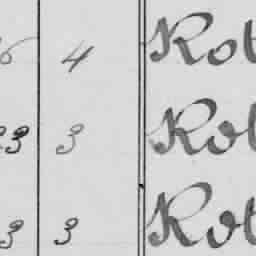 6 4 Rot
23 3 Rot
3 3 Rot